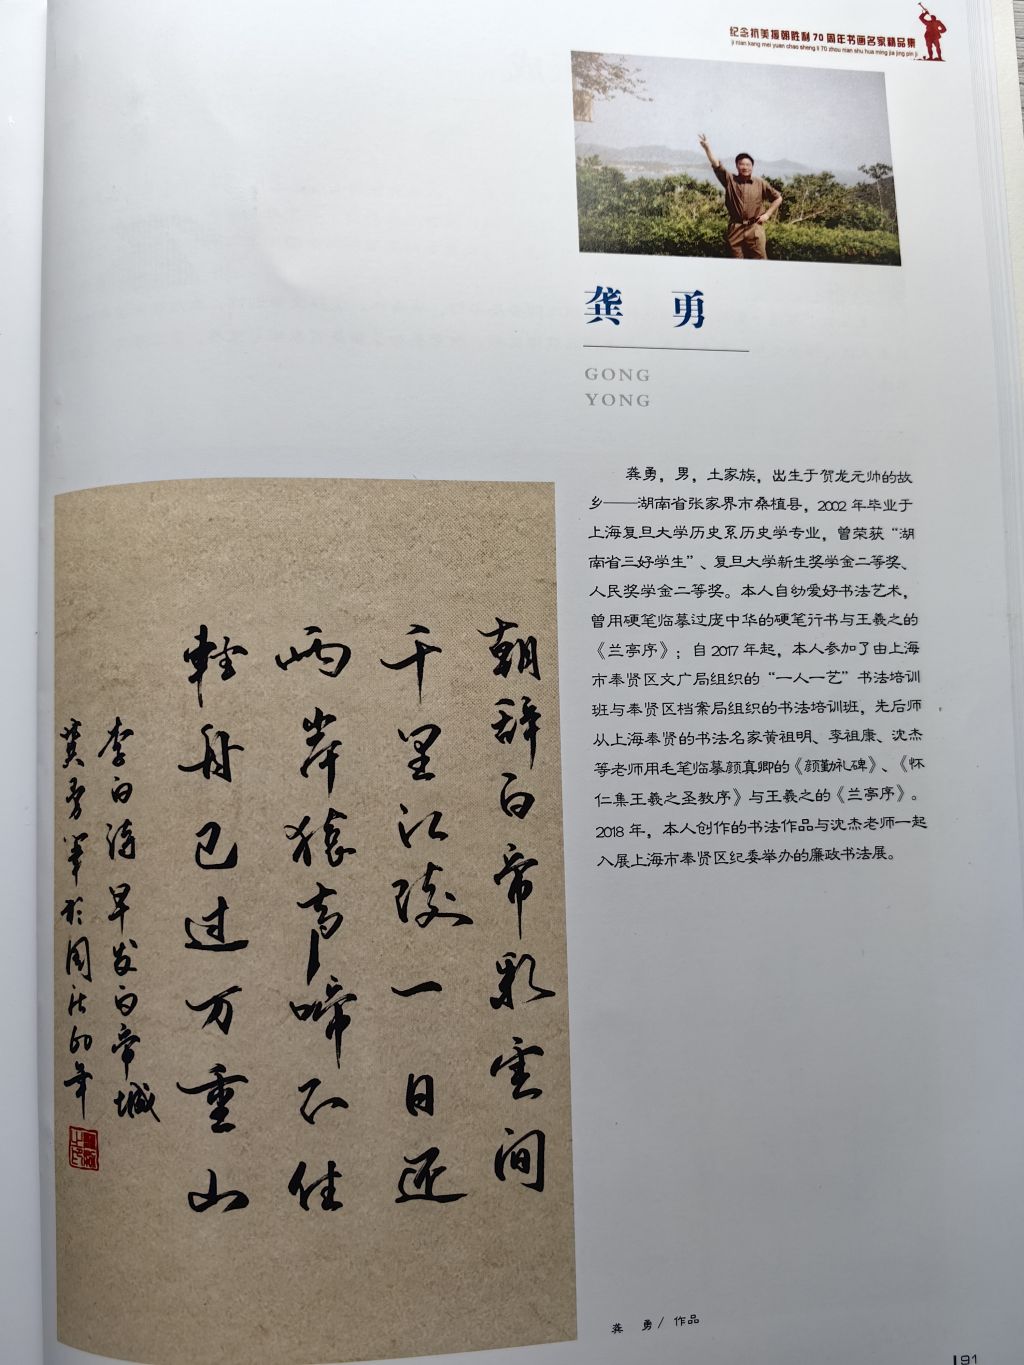 纪念抗美援朝胜利70周年书画名家精品集
ji nian kang mei yuan chao sheng li 70 zhou nian shu hua ming jia jing pin ji
龚 勇
GONG
YONG
龚勇，男，土家族，出生于贺龙元帅的故
乡——湖南省张家界市桑植县，2002年毕业于
上海复旦大学历史系历史学专业，曾荣获“湖
南省三好学生”、复旦大学新生奖学金二等奖、
人民奖学金二等奖。本人自幼爱好书法艺术，
曾用硬笔临摹过庞中华的硬笔行书与王羲之的
《兰亭序》；自2017年起，本人参加了由上海
市奉贤区文广局组织的“一人一艺”书法培训
班与奉贤区档案局组织的书法培训班，先后师
从上海奉贤的书法名家黄祖明、李祖康、沈杰
等老师用毛笔临摹颜真卿的《颜勤礼碑》、《怀
仁集王羲之圣教序》与王羲之的《兰亭序》。
2018年，本人创作的书法作品与沈杰老师一起
入展上海市奉贤区纪委举办的廉政书法展。
朝辞白帝彩云间
千里江陵一日还
两岸猿声啼不住
轻舟已过万重山
李白诗早发白帝城
龚勇笔于国法60年
龚 勇/ 作品
191